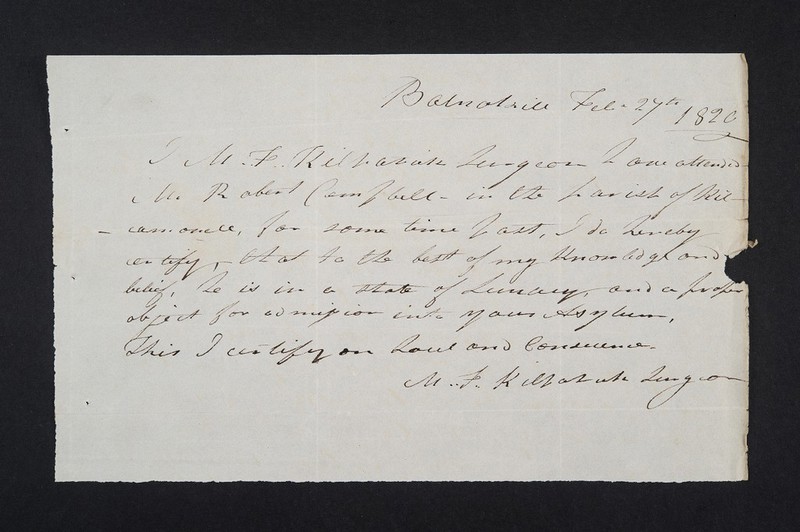 Feb 27th 1820
I M. F. Kilpatrick Surgeon have attended
Mr Robert Campbell - in the parish of Kil-
-camonell, for some time past, I do hereby
certify, that to the best of my Knowledge and
belief, he is in a state of Lunacy, and a proper
object for admission into your Asylum,
This I certify on Soul and Conscience.
M. F. Kilpatrick Surgeon